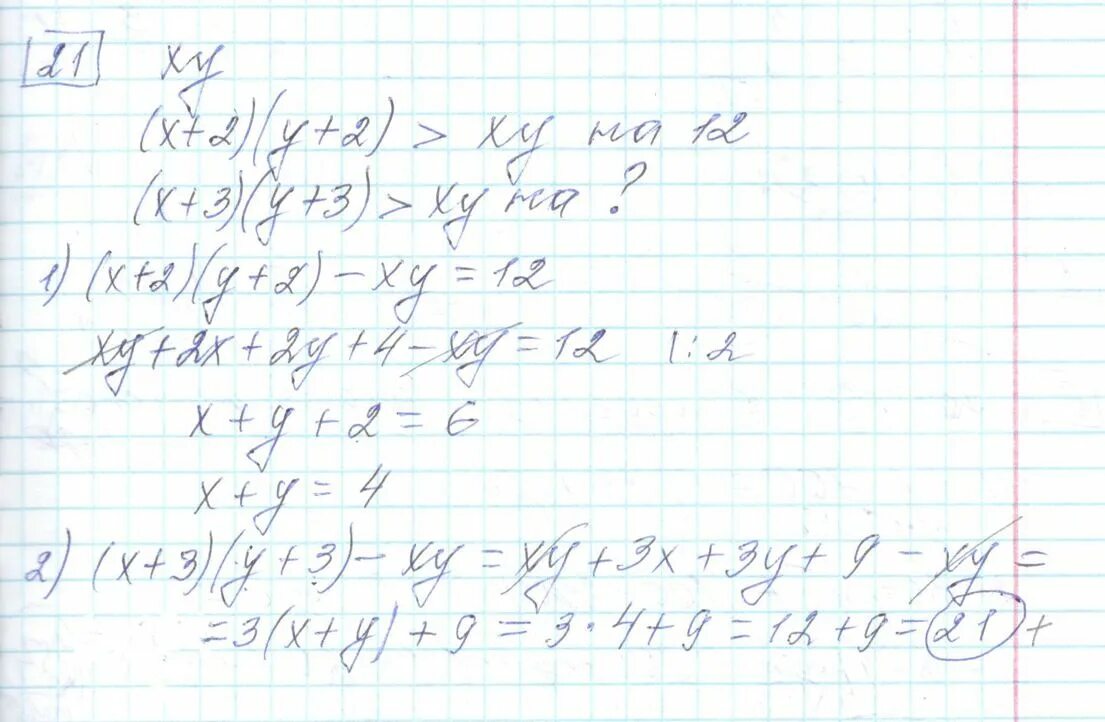 21 xy
(x+2)(y+2) > xy на 12
(x+3)(y+3) > xy на ?
1) (x+2)(y+2) - xy = 12
xy + 2x + 2y + 4 - xy = 12 |:2
x + y + 2 = 6
x + y = 4
2) (x+3)(y+3) - xy = xy + 3x + 3y + 9 - xy =
= 3(x+y) + 9 = 3·4 + 9 = 12 + 9 = 21 +